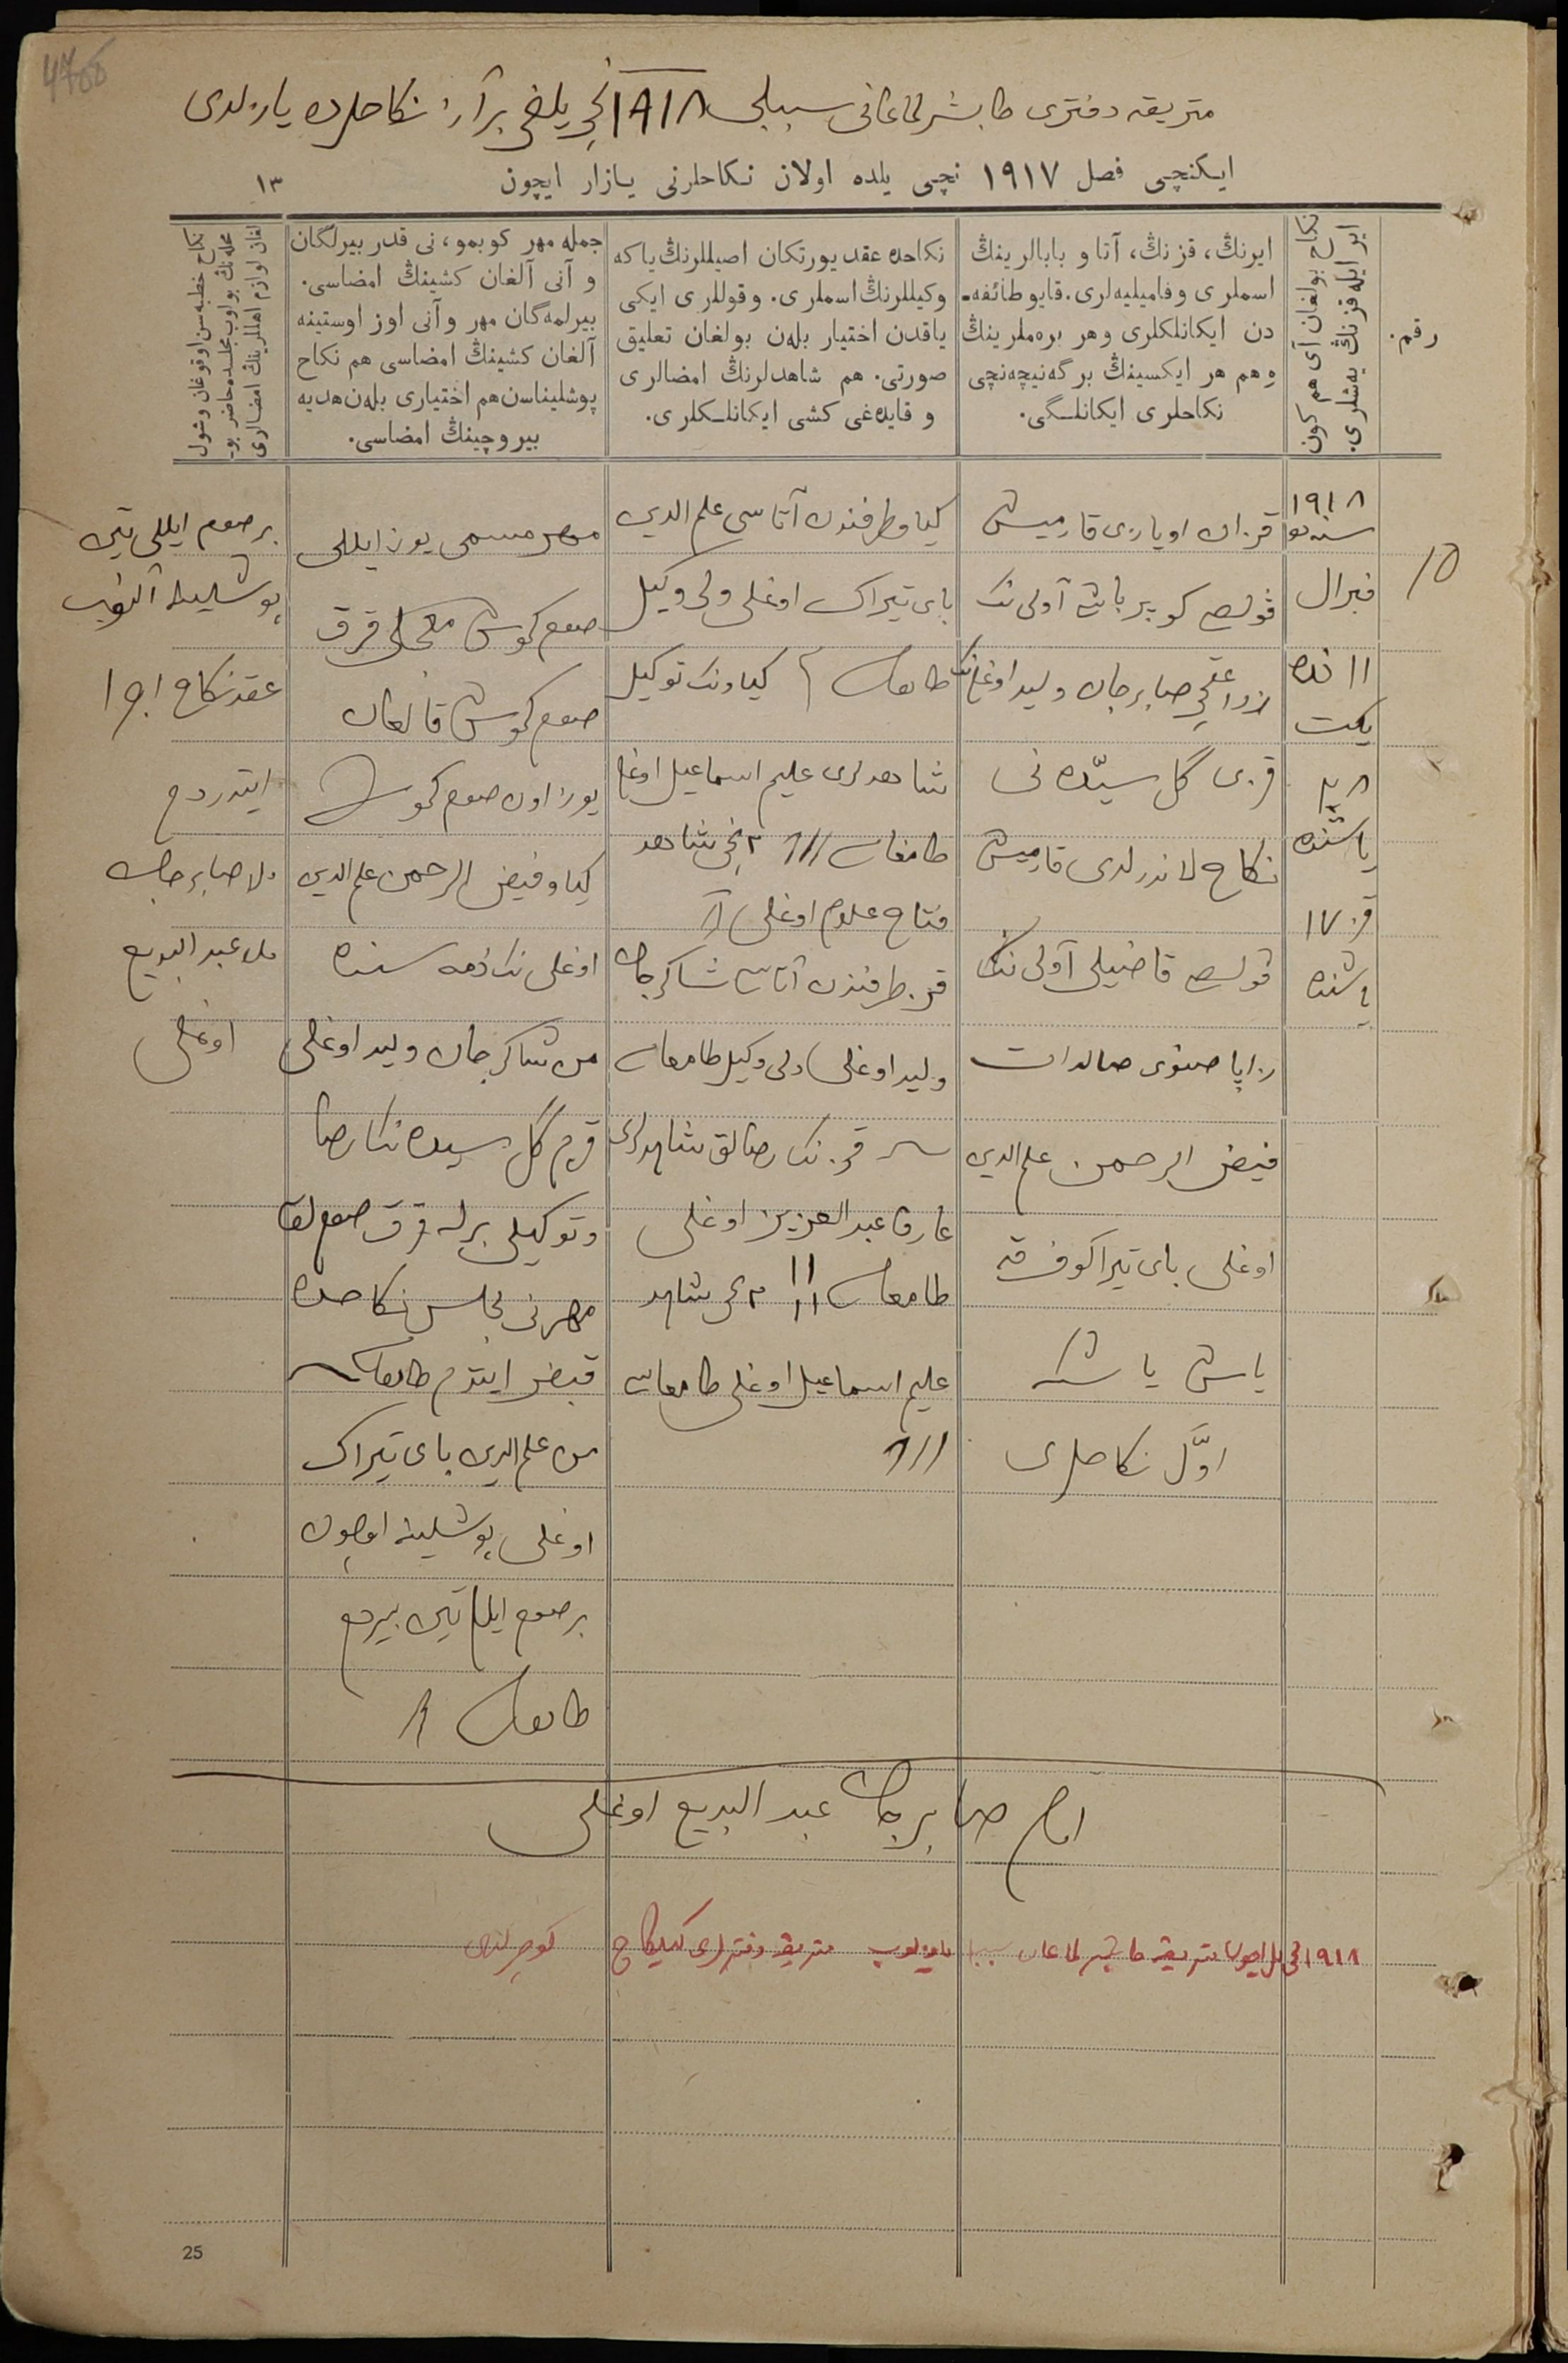 متریقه دفتری طابشرلماغانی سببلی ۱۹۱۸ نچی یلغی بر آز نکاحلرده یازلدی
ایکنچی فصل ۱۹۱۷ نچی یلده اولان نکاحلرنی یازار ایچون
۱۳
رقم.
نکاح بولغان آی هم کون
ایر ایله قزنڭ یەشلری.
ایرنڭ، قزنڭ، آتا و بابالرینڭ
اسملری وفامیلیەلری. قایو طائفه‌ـ
دن ایکانلکلری وهر برەملرینڭ
وهم هر ایکسینڭ برگەنیچەنچی
نکاحلری ایکانلـگی.
نکاحده عقد یورتکان اصیللرنڭ یاکه
وکیللرنڭ اسملری. وقوللری ایکی
یاقدن اختیار بلەن بولغان تعلیق
صورتی. هم شاهدلرنڭ امضالری
و قایدەغی کشی ایکانلـکلری.
جمله مهر کوبمو، نی قدر بیرلگان
و آنی آلغان کشینڭ امضاسی.
بیرلمەگان مهر وآنی اوز اوستینه
آلغان کشینڭ امضاسی هم نکاح
پوشلیناسن هم اختیاری بلەن هدیه
بیروچینڭ امضاسی.
نکاح خطبەسن اوقوغان وشول
محلەنڭ بولوب مجلسده حاضر بو.
لغان لوازم اهللرینڭ امضالری
۱۵
۱۹۱۸
سنه نو
فبرال
۱۱ نده
یکت
۲۸
یاشنده
قز ۱۷
یاشنده
قزان اویازی قارمیش
ڤولص کوپرباش آولی نک
صابرجان ولید اوغلی نک
قزی گل سیّده نی
نکاح لاندرلدی قارمیش
ڤولص قاضیلی آولی نک
زاپاصنوی صالدات
فیض الرحمن علم الدین
اوغلی بای تیراکوف قه
یاش یاشکه
اوّل نکاحلری
کیاو طرفندن آتاسی علم الدین
بای تیراک اوغلی ولی وکیل
طامغاسی کیاونک توکیل
شاهدلری علیم اسماعیل اوغلی
طامغاسی ااا ۲ نچی شاهد
فتاح علوم اوغلی
قز طرفندن آتاسی شاکرجان
ولید اوغلی ولی وکیل طامغاسی
قزنک رضالق شاهدلری
عارف عبد العزیز اوغلی
طامغاسی ۱۱ ۲ نچی شاهد
علیم اسماعیل اوغلی طامغاسی
ااا
مهر مسمی یوز ایللی
صوم کموش معجلی قرق
صوم کموش قالغان
یوز اون صوم کموش
کیاو فیض الرحمن علم الدین
اوغلی نک ذمه سنده
من شاکرجان ولید اوغلی
قزم گل سیده نک رضا
و توکیلی برله قرق صوم نقد
مهرنی مجلس نکاحده
قبض ایتدم طامغاسی
من علم الدین بای تیراک
اوغلی پوشلینه اوچون
بر صوم ایللی تین بیردم
طامغاسی
بر صوم ایللی تین
پوشلینه آلنوب
عقد نکاح اجرا
ایتدردم
ملا صابرجان
ملا عبد البدیع
اوغلی
امام صابرجان عبد البدیع اوغلی
۱۹۱۸ نچی یل اوچون متریقه طابشرلماغان سببلی متریقه دفترلری کوچرلندی
25